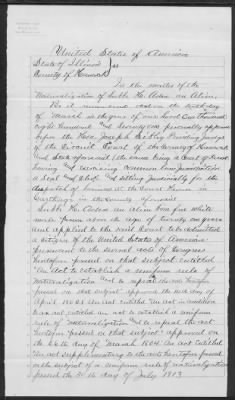 United States of America
State of Illinois } ss
County of Hancock
In the matter of the
Naturalization of Lubbe H. Aden an Alien.
Be it remembered that on the day
of March in the year of our Lord One thousand
eight hundred and Seventy one personally appeared
before the Hon Joseph Sibley Presiding Judge
of the Circuit Court of the County of Hancock
and State aforesaid (the same being a Court of Record
having and exercising Common law jurisdiction
a Seal and Clerk and sitting judicially for the
dispatch of business at the Court House in
Carthage in the County aforesaid
Lubbe H. Aden an alien born free white
male person above the age of twenty one years
and applied to the said Court to be admitted
a citizen of the United States of America
pursuant to the several acts of Congress
heretofore passed on that subject entitled
"An act to establish a uniform rule of
naturalization and to repeal the acts heretofore
passed on that subject approved the 14th day of
April 1802 An act entitled An act in addition
to an act entitled an act to establish a uniform
rule of naturalization and to repeal the acts
heretofore passed on that subject" approved on
the 26th day of March 1804 An act entitled
"An act supplementary to the acts heretofore passed
on the subject of a uniform rule of naturalization
passed the 30th day of July 1813